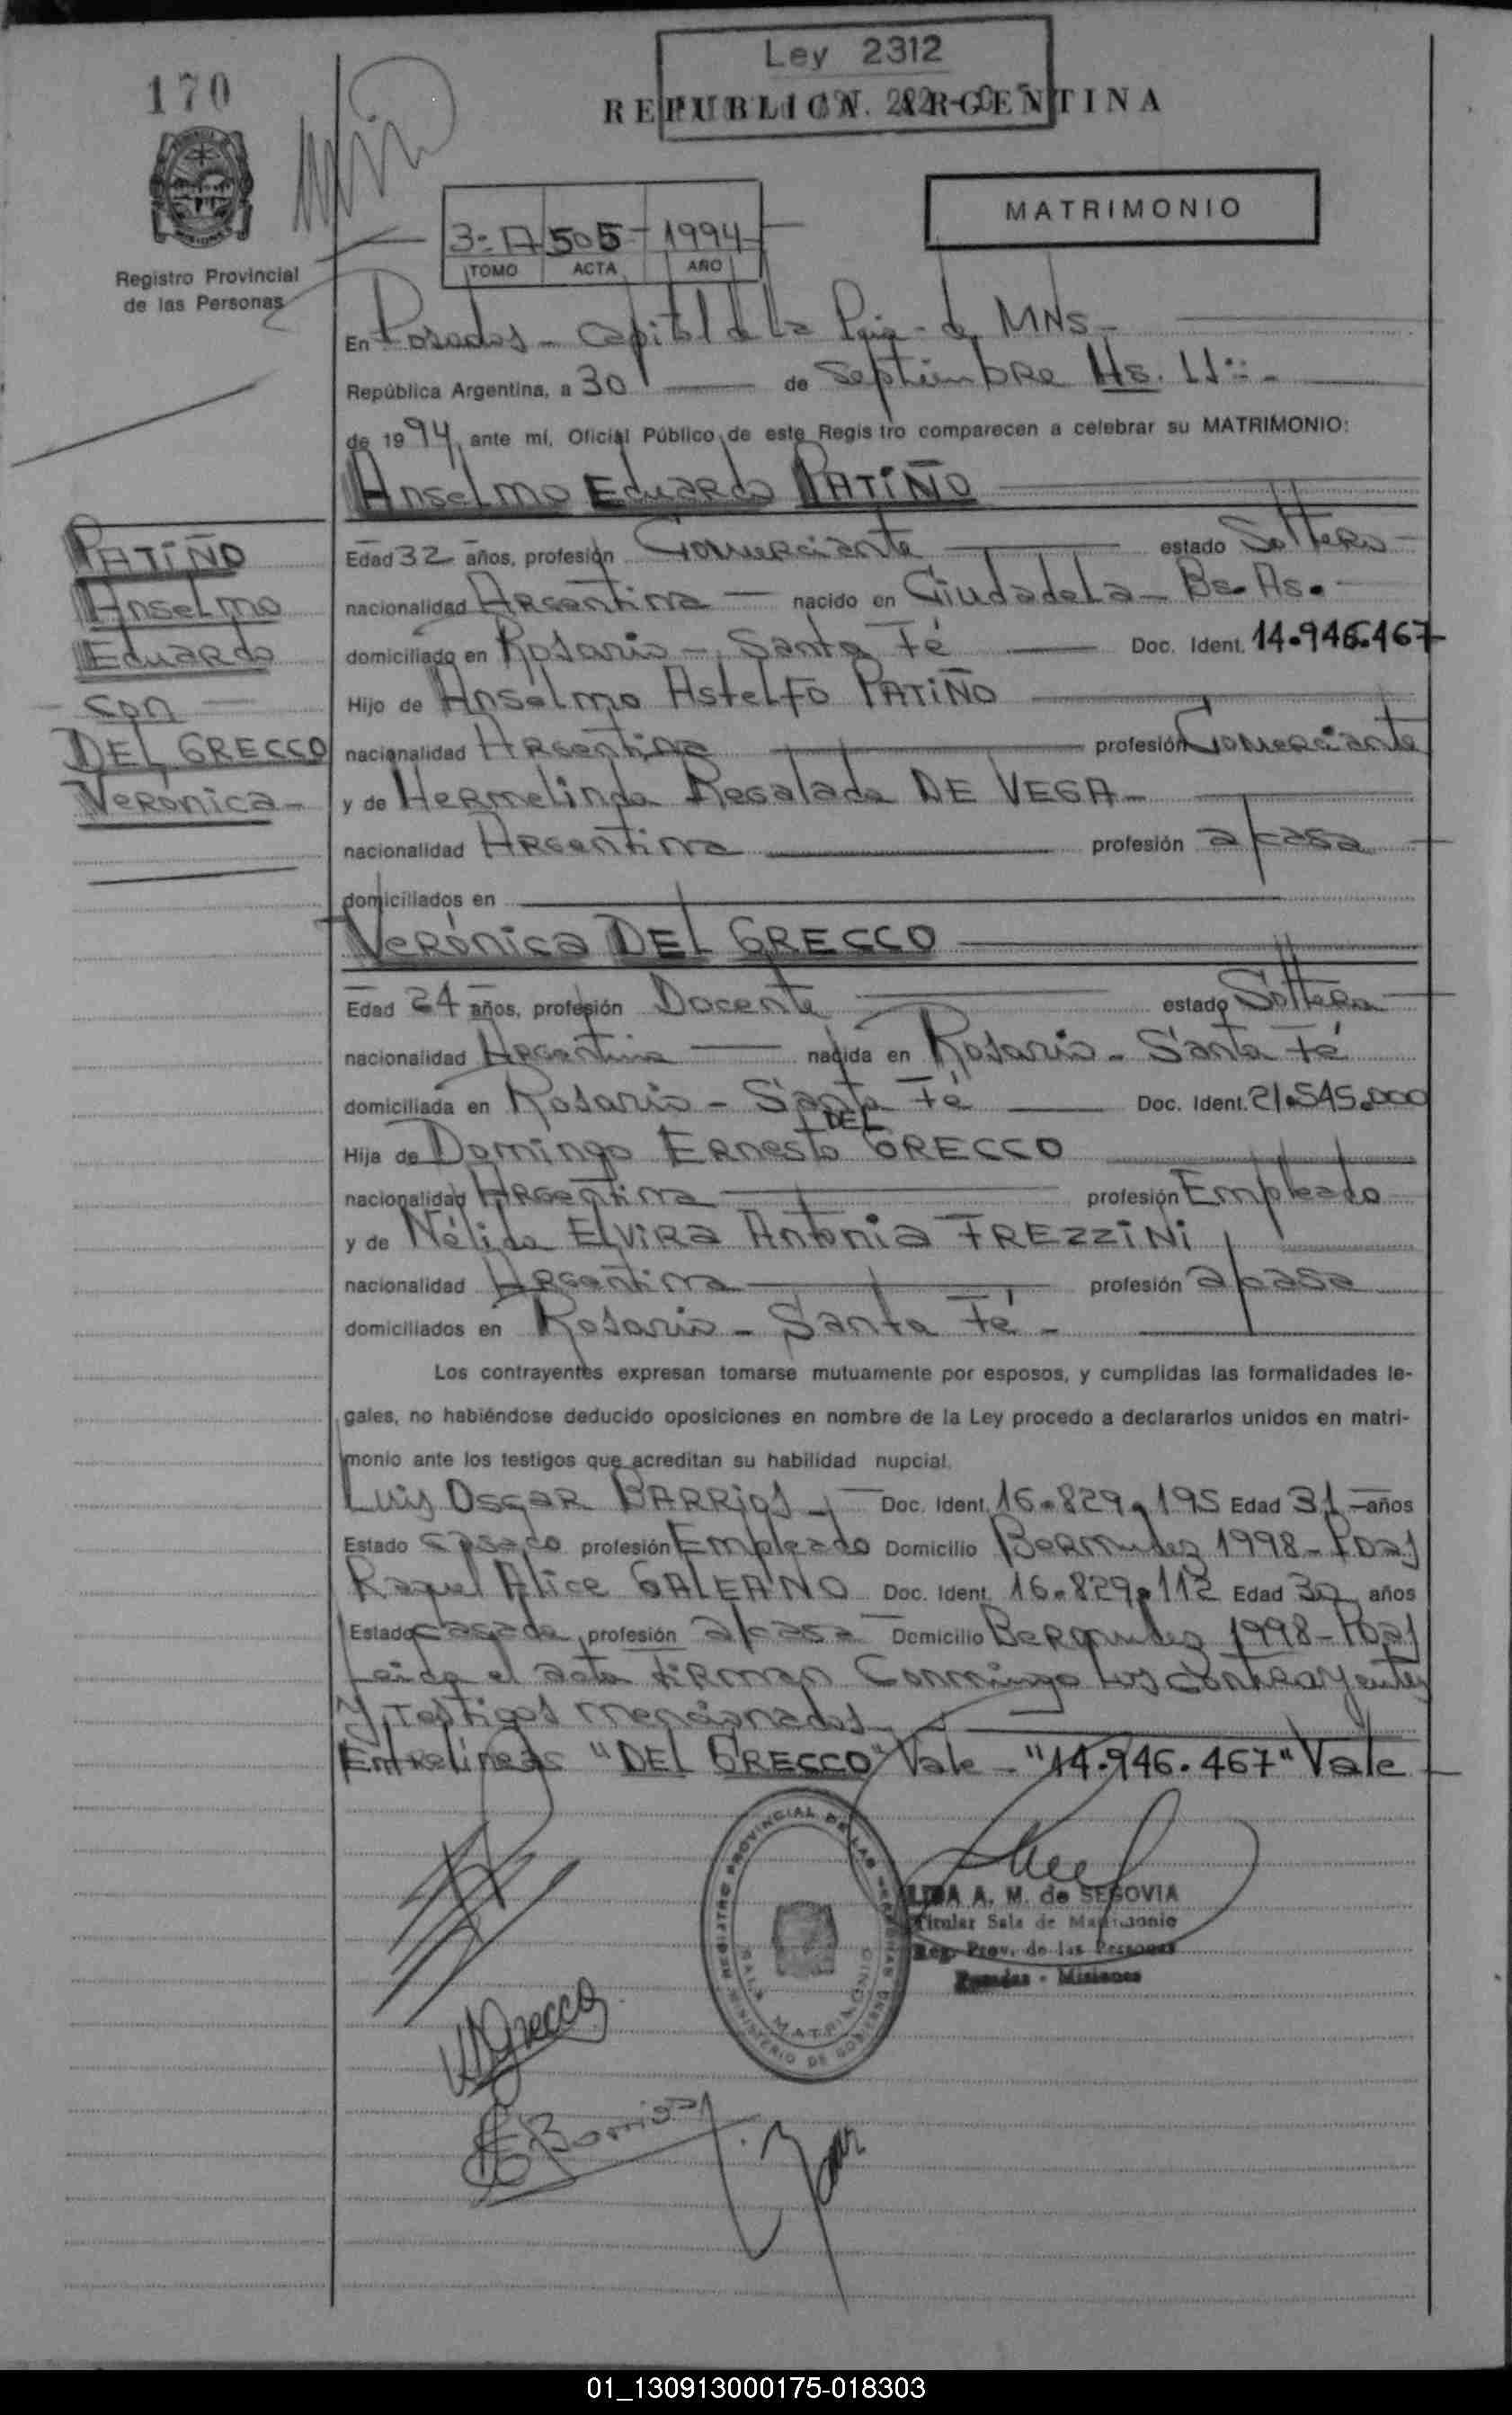 170
Ley 2312
REPUBLICA ARGENTINA
MATRIMONIO
3-A 505 1994
TOMO ACTA AÑO
Registro Provincial
de las Personas
En Posadas - Capital de la Pcia. de MNS -
República Argentina, a 30 de Septiembre Hs. 11
de 1994, ante mí, Oficial Público de este Registro comparecen a celebrar su MATRIMONIO:
Anselmo Eduardo PATIÑO
PATIÑO
Anselmo
Eduardo
- con -
DEL GRECCO
Verónica -
Edad 32 años, profesión Comerciante estado Soltero
nacionalidad Argentina - nacido en Ciudadela - Bs. As. -
domiciliado en Rosario - Santa Fé Doc. Ident. 14.946.467
Hijo de Anselmo Astelfo PATIÑO
nacionalidad Argentina profesión Comerciante
y de Hermelinda Regalada DE VEGA -
nacionalidad Argentina profesión a/casa
domiciliados en
Verónica DEL GRECCO
Edad 24 años, profesión Docente estado Soltera
nacionalidad Argentina - nacida en Rosario - Santa Fé
domiciliada en Rosario - Santa Fé Doc. Ident. 21.545.000
DEL
Hija de Domingo Ernesto GRECCO
nacionalidad Argentina profesión Empleado
y de Nélida Elvira Antonia FREZZINI
nacionalidad Argentina profesión a/casa
domiciliados en Rosario - Santa Fé -
Los contrayentes expresan tomarse mutuamente por esposos, y cumplidas las formalidades le-
gales, no habiéndose deducido oposiciones en nombre de la Ley procedo a declararlos unidos en matri-
monio ante los testigos que acreditan su habilidad nupcial.
Luis Oscar BARRIOS - Doc. Ident. 16.829.195 Edad 31 años
Estado casado profesión Empleado Domicilio Bermudez 1998 - Pdas
Raquel Alice GALEANO Doc. Ident. 16.829.112 Edad 30 años
Estado casada profesión a/casa Domicilio Bermudez 1998 - Pdas
Leida el acta firman Conmingo los contrayentes
y testigos mencionados -
Entrelíneas "DEL GRECCO" Vale - "14.946.467" Vale
REGISTRO PROVINCIAL DE LAS PERSONAS
SALA MATRIMONIO
MINISTERIO DE GOBIERNO
A. M. de SEGOVIA
Titular Sala de Matrimonio
Reg. Prov. de las Personas
Posadas - Misiones
Grecco
Barrios
01_130913000175-018303